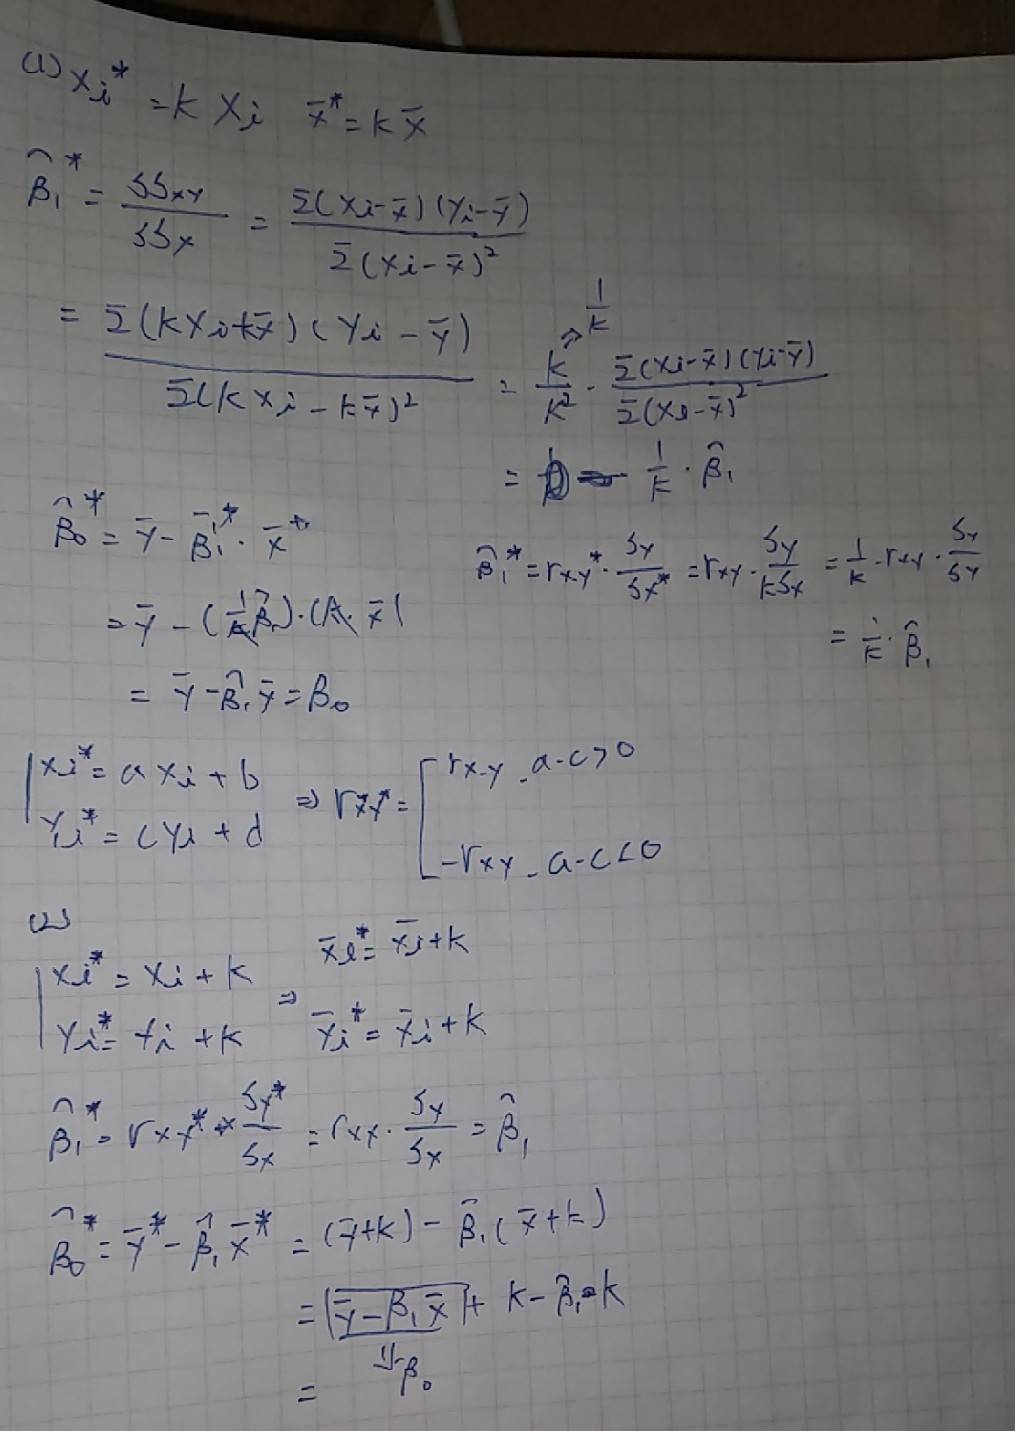 (1) xi* = k xi   x̄* = k x̄
β̂1* = SSxy / SSx = Σ(xi-x̄)(yi-ȳ) / Σ(xi-x̄)²
= Σ(kxi+kx̄)(yi-ȳ) / Σ(kxi-kx̄)² = k/k² · Σ(xi-x̄)(yi-ȳ) / Σ(xi-x̄)²
⇒ 1/k
= 1/k · β̂1
β̂0* = ȳ - β̂1* · x̄*
= ȳ - (1/k β̂1)·(k·x̄)
= ȳ - β̂1 x̄ = β0
β̂1* = rxy* · Sy/Sx* = rxy · Sy/kSx = 1/k · rxy · Sy/Sy
= 1/k · β̂1
xi* = a xi + b
yi* = c yi + d
⇒ rxy* = [ rxy - a-c>0
-rxy - a-c<0
(2)
xi* = xi + k
yi* = yi + k
⇒ x̄i* = x̄i + k
ȳi* = ȳi + k
β̂1* = rxy* · Sy*/Sx = rxy · Sy/Sx = β̂1
β̂0* = ȳ* - β̂1 x̄* = (ȳ+k) - β̂1(x̄+k)
= |ȳ - β1 x̄| + k - β̂1·k
⇓ β0
=